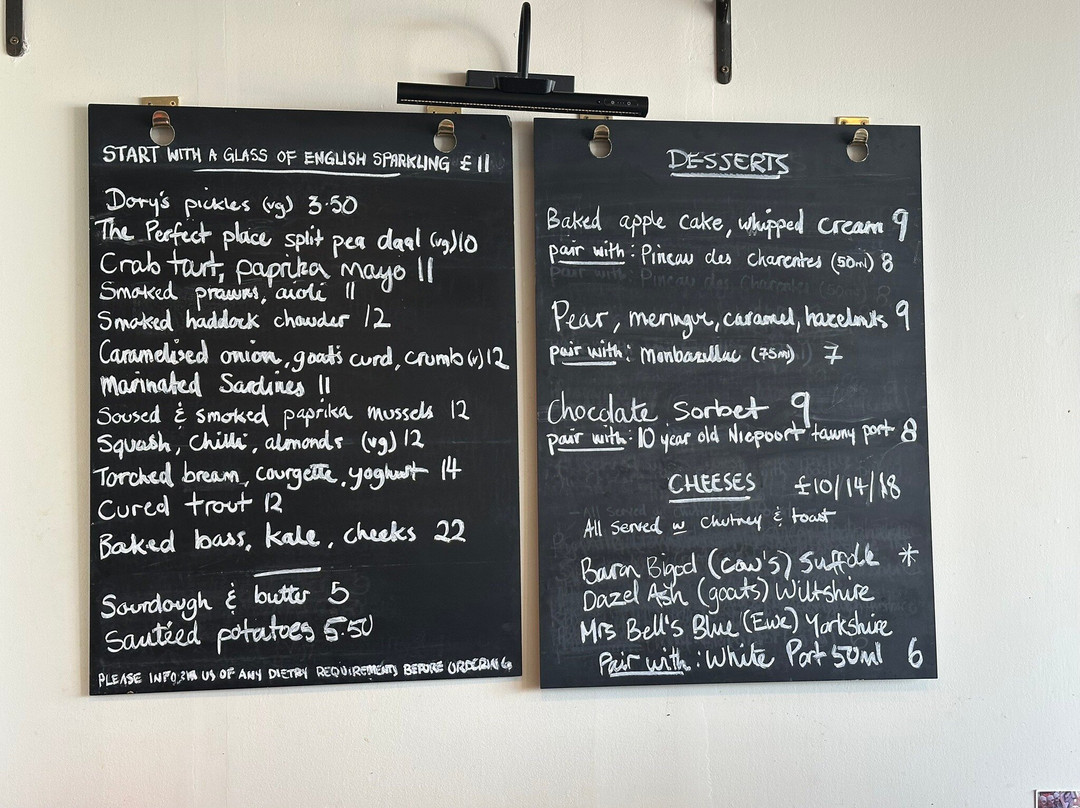 START WITH A GLASS OF ENGLISH SPARKLING £11
Dory's pickles (vg) 3.50
The Perfect place split pea daal (vg) 10
Crab tart, paprika mayo 11
Smoked prawns, aioli 11
Smoked haddock chowder 12
Caramelised onion, goat's curd, crumb (v) 12
Marinated Sardines 11
Soused & smoked paprika mussels 12
Squash, chilli, almonds (vg) 12
Torched bream, courgette, yoghurt 14
Cured trout 12
Baked bass, kale, cheeks 22
Sourdough & butter 5
Sautéed potatoes 5.50
PLEASE INFORM US OF ANY DIETRY REQUIREMENTS BEFORE ORDERING
DESSERTS
Baked apple cake, whipped cream 9
pair with: Pineau des charentes (50ml) 8
Pear, meringue, caramel, hazelnuts 9
pair with: Monbazillac (75ml) 7
Chocolate Sorbet 9
pair with: 10 year old Niepoort tawny port 8
CHEESES £10/14/18
All served w chutney & toast
Baron Bigod (cow's) Suffolk *
Dazel Ash (goats) Wiltshire
Mrs Bell's Blue (Ewe) Yorkshire
Pair with: White Port 50ml 6